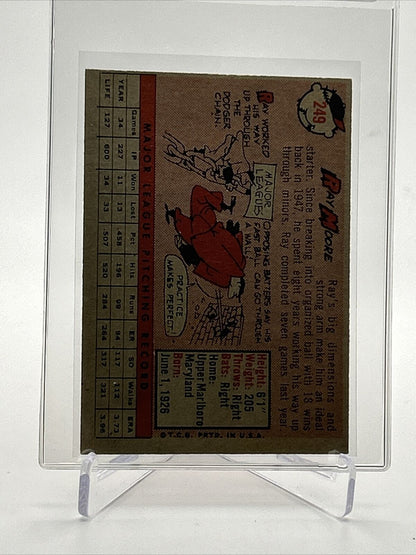 249
RAY MOORE
Ray's big dimensions and
strong arm make him an ideal
starter. Since breaking into organized ball with 18 wins
back in 1947, he spent eight years working his way up
through minors. Ray completed seven games last year.
RAY WORKED
HIS WAY
UP THROUGH
THE
DODGER
CHAIN.
MAJOR
LEAGUES
OPPOSING BATTERS SAY HIS
FAST BALL CAN GO THROUGH
A WALL.
PRACTICE
MAKES PERFECT!
Height: 6'1"
Weight: 205
Throws: Right
Bats: Right
Home:
Upper Marlboro
Maryland
Born:
June 1, 1926
© T.C.G. PRTD. IN U.S.A.
MAJOR LEAGUE PITCHING RECORD
Games IP Won Lost Pct. Hits Runs ER SO Walks ERA
YEAR 34 227 11 13 .458 196 99 94 117 112 3.73
LIFE 127 600 34 33 .507 520 284 264 317 321 3.96